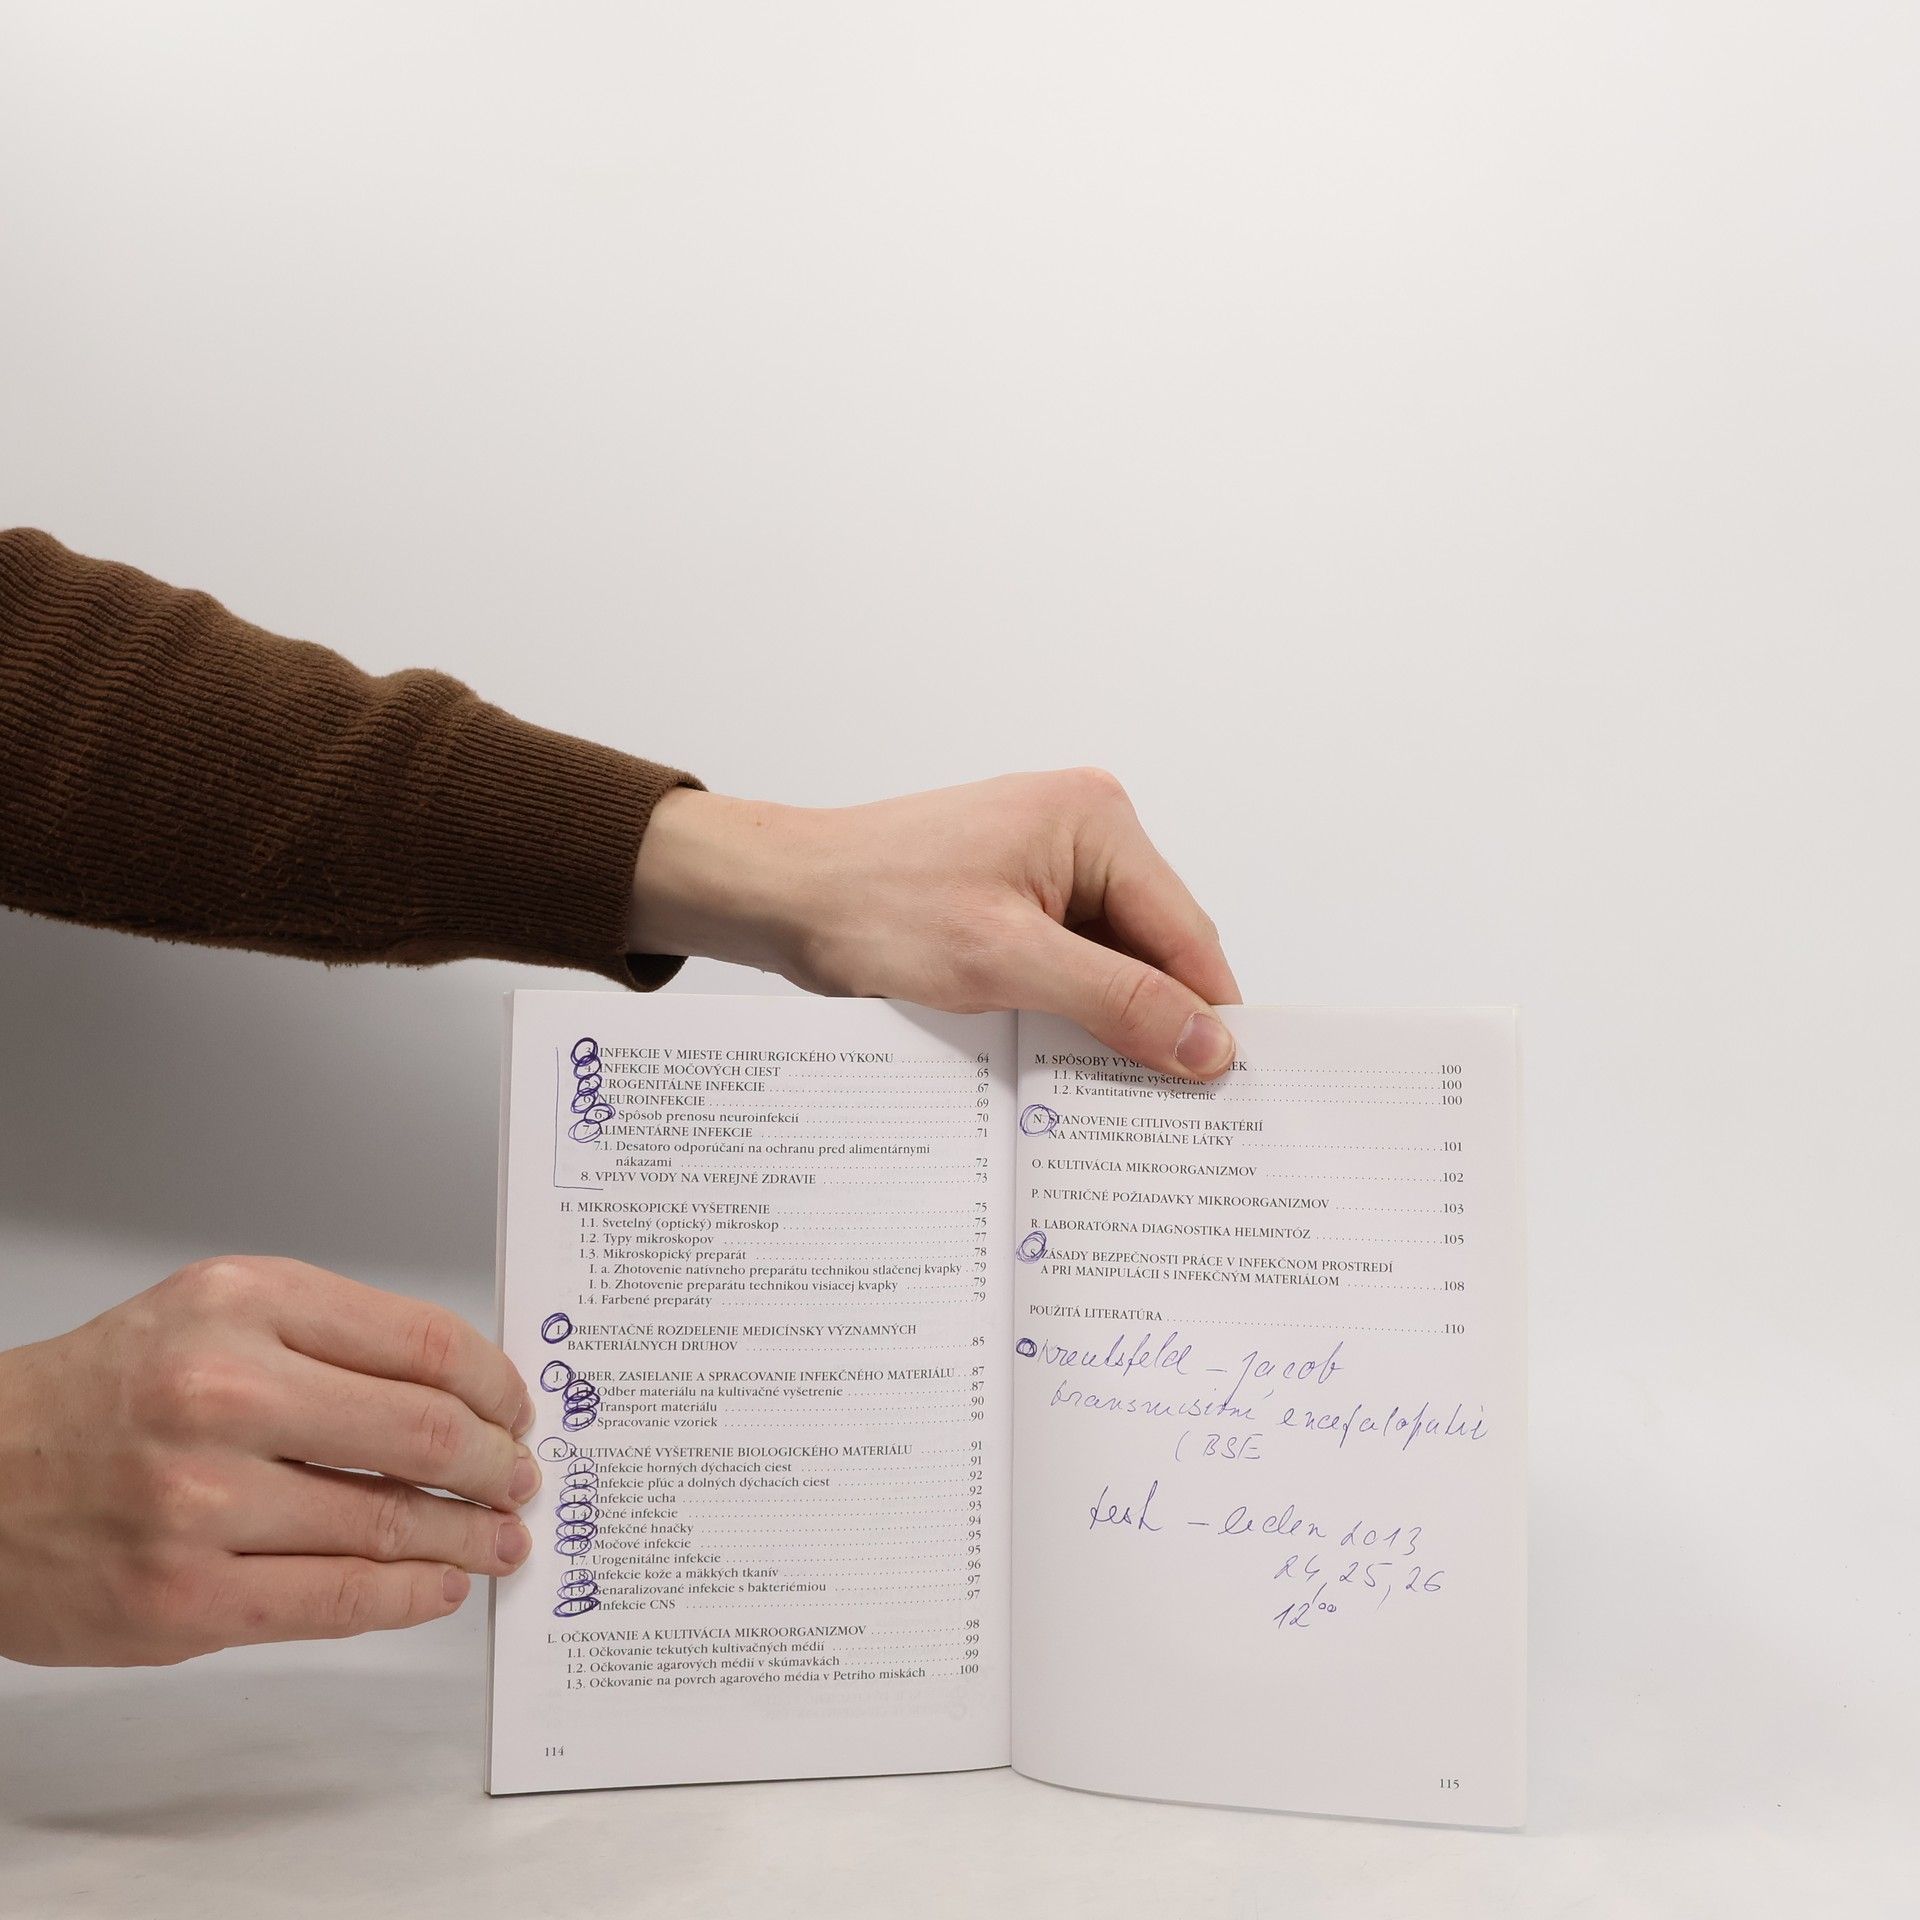 3. INFEKCIE V MIESTE CHIRURGICKÉHO VÝKONU ............64
4. INFEKCIE MOČOVÝCH CIEST ............65
5. UROGENITÁLNE INFEKCIE ............67
6. NEUROINFEKCIE ............69
6.1. Spôsob prenosu neuroinfekcií ............70
7. ALIMENTÁRNE INFEKCIE ............71
7.1. Desatoro odporúčaní na ochranu pred alimentárnymi
nákazami ............72
8. VPLYV VODY NA VEREJNÉ ZDRAVIE ............73
H. MIKROSKOPICKÉ VYŠETRENIE ............75
1.1. Svetelný (optický) mikroskop ............75
1.2. Typy mikroskopov ............77
1.3. Mikroskopický preparát ............78
I. a. Zhotovenie natívneho preparátu technikou stlačenej kvapky . .79
I. b. Zhotovenie preparátu technikou visiacej kvapky ............79
1.4. Farbené preparáty ............79
I. ORIENTAČNÉ ROZDELENIE MEDICÍNSKY VÝZNAMNÝCH
BAKTERIÁLNYCH DRUHOV ............85
J. ODBER, ZASIELANIE A SPRACOVANIE INFEKČNÉHO MATERIÁLU . . .87
1.1. Odber materiálu na kultivačné vyšetrenie ............87
1.2. Transport materiálu ............90
1.3. Spracovanie vzoriek ............90
K. KULTIVAČNÉ VYŠETRENIE BIOLOGICKÉHO MATERIÁLU ............91
1.1. Infekcie horných dýchacích ciest ............91
1.2. Infekcie pľúc a dolných dýchacích ciest ............92
1.3. Infekcie ucha ............92
1.4. Očné infekcie ............93
1.5. Infekčné hnačky ............94
1.6. Močové infekcie ............95
1.7. Urogenitálne infekcie ............95
1.8. Infekcie kože a mäkkých tkanív ............96
1.9. Genaralizované infekcie s bakteriémiou ............97
1.10. Infekcie CNS ............97
L. OČKOVANIE A KULTIVÁCIA MIKROORGANIZMOV ............98
1.1. Očkovanie tekutých kultivačných médií ............99
1.2. Očkovanie agarových médií v skúmavkách ............99
1.3. Očkovanie na povrch agarového média v Petriho miskách .....100
114
M. SPÔSOBY ............100
1.1. Kvalitatívne vyšetrenie ............100
1.2. Kvantitatívne vyšetrenie ............100
N. STANOVENIE CITLIVOSTI BAKTÉRIÍ
NA ANTIMIKROBIÁLNE LÁTKY ............101
O. KULTIVÁCIA MIKROORGANIZMOV ............102
P. NUTRIČNÉ POŽIADAVKY MIKROORGANIZMOV ............103
R. LABORATÓRNA DIAGNOSTIKA HELMINTÓZ ............105
S. ZÁSADY BEZPEČNOSTI PRÁCE V INFEKČNOM PROSTREDÍ
A PRI MANIPULÁCII S INFEKČNÝM MATERIÁLOM ............108
POUŽITÁ LITERATÚRA ............110
Kreutsfeld – Jacob
transmisivní encefalopatie
( BSE
test – leden 2013
24, 25, 26
12⁰⁰
115